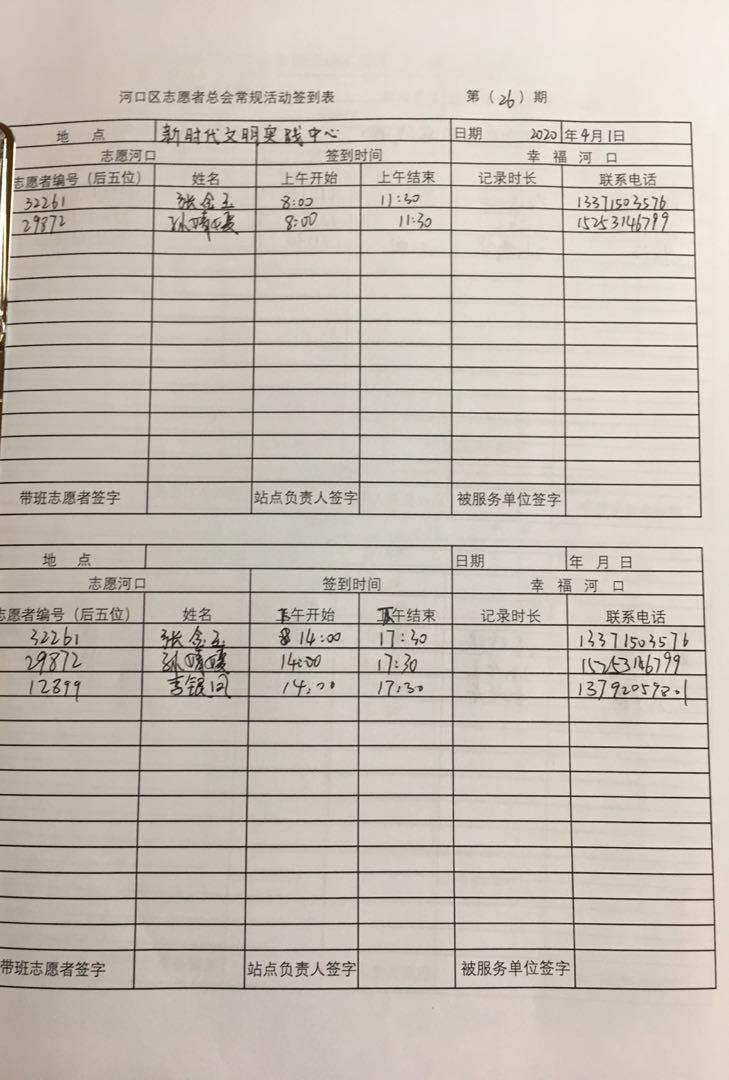 河口区志愿者总会常规活动签到表 第（26）期
地 点 新时代文明实践中心 日期 2020年4月1日
志愿河口 签到时间 幸福河口
志愿者编号（后五位） 姓名 上午开始 上午结束 记录时长 联系电话
32261 张金玉 8:00 11:30 13371503576
29872 孙 8:00 11:30 15253146799
带班志愿者签字 站点负责人签字 被服务单位签字
地 点 日期 年 月 日
志愿河口 签到时间 幸福河口
志愿者编号（后五位） 姓名 下午开始 下午结束 记录时长 联系电话
32261 张金玉 14:00 17:30 13371503576
29872 孙 14:00 17:30 15253146799
12899 李银 14:00 17:30
带班志愿者签字 站点负责人签字 被服务单位签字